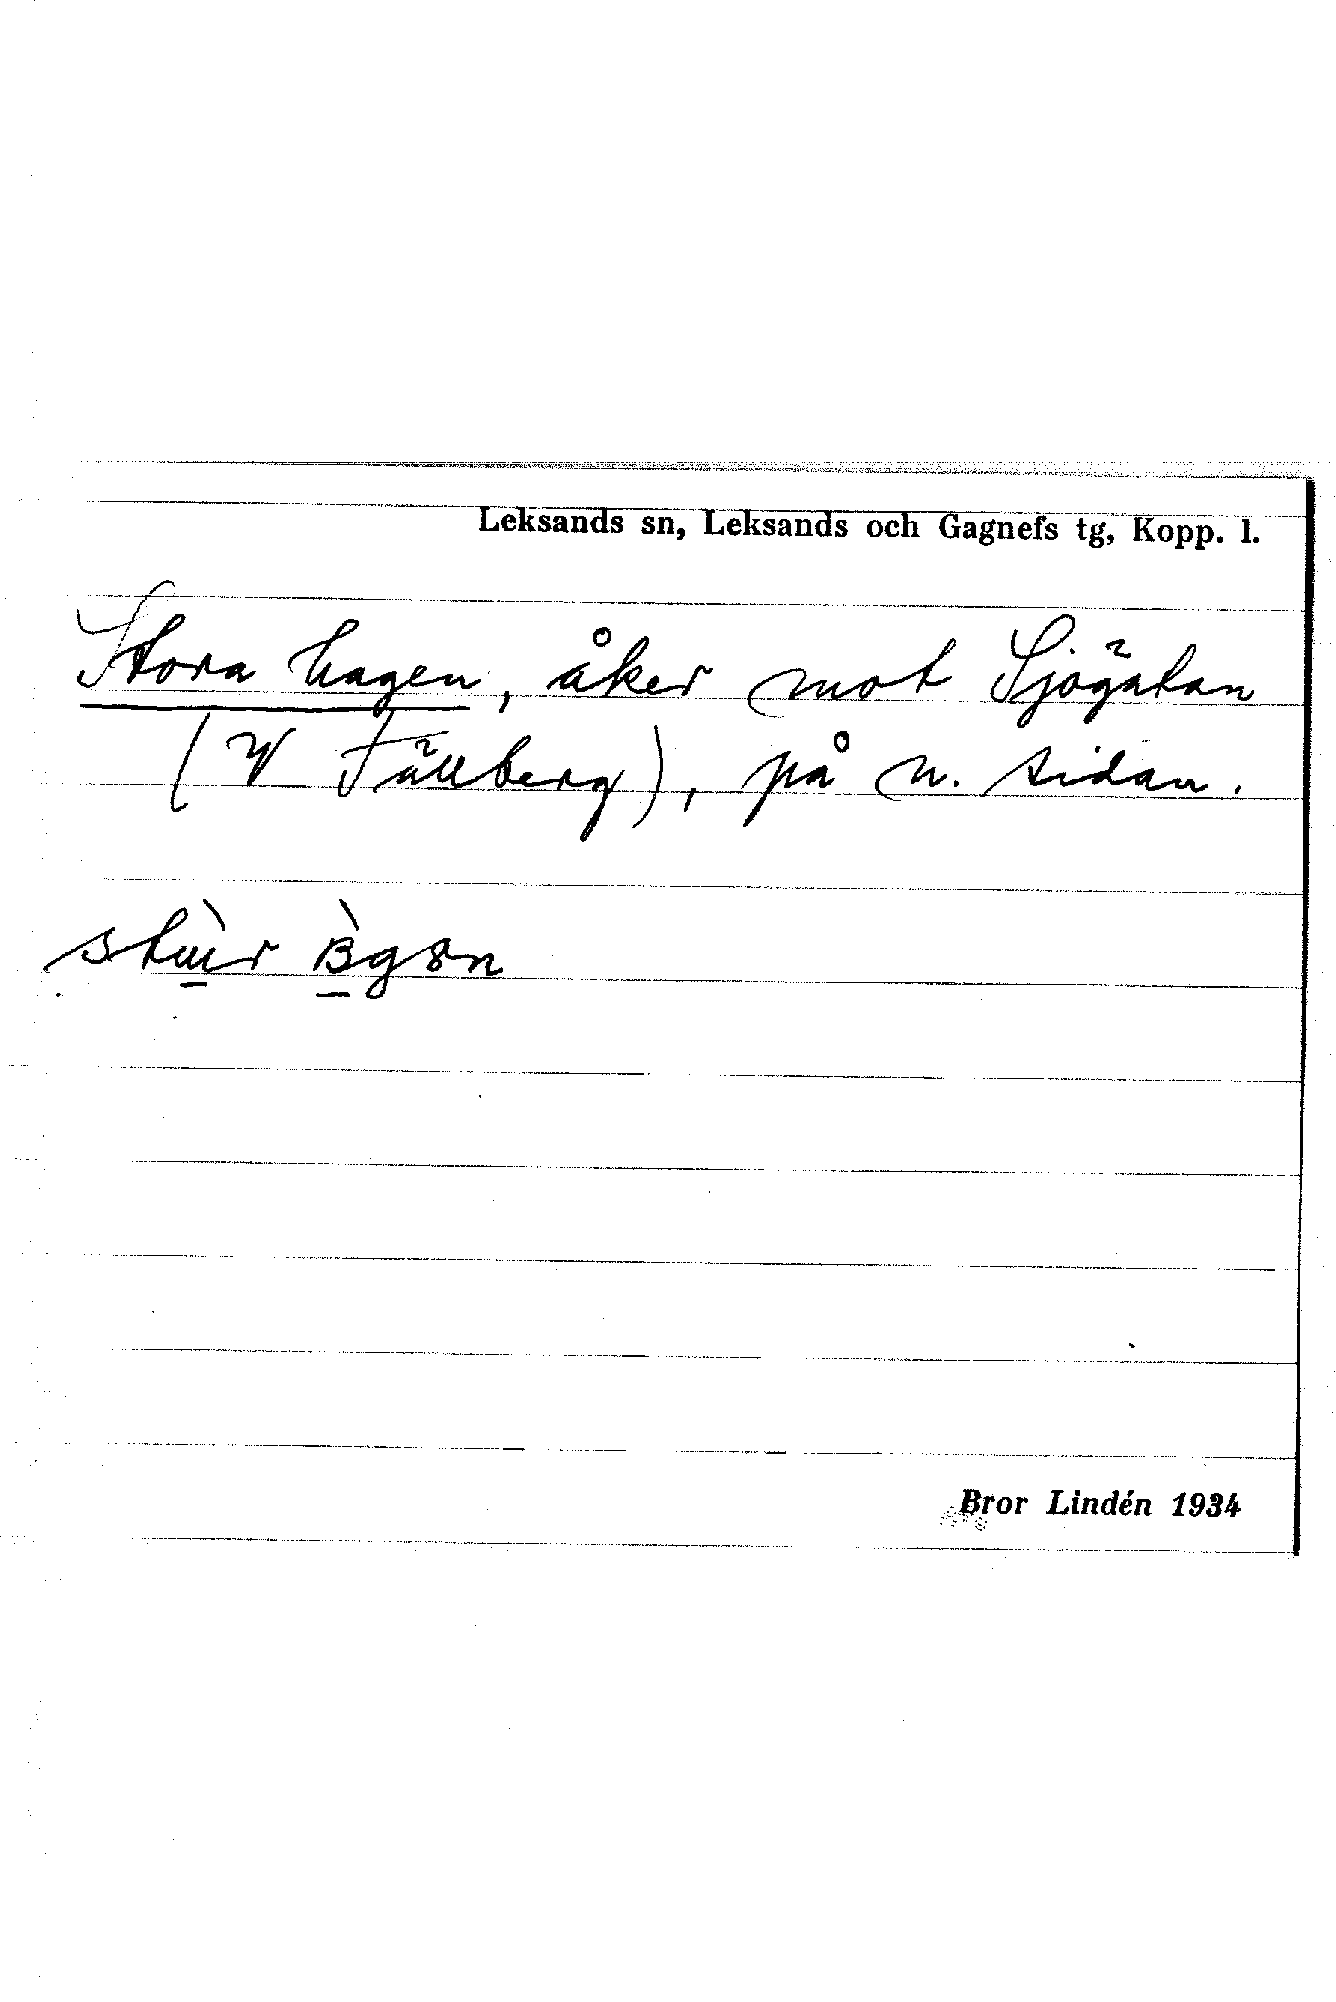 Leksands sn, Leksands och Gagnefs tg, Kopp. l.
Stora hagen, åker mot Sjögatan
(V Tällberg), på n. sidan.
Bror Lindén 1934